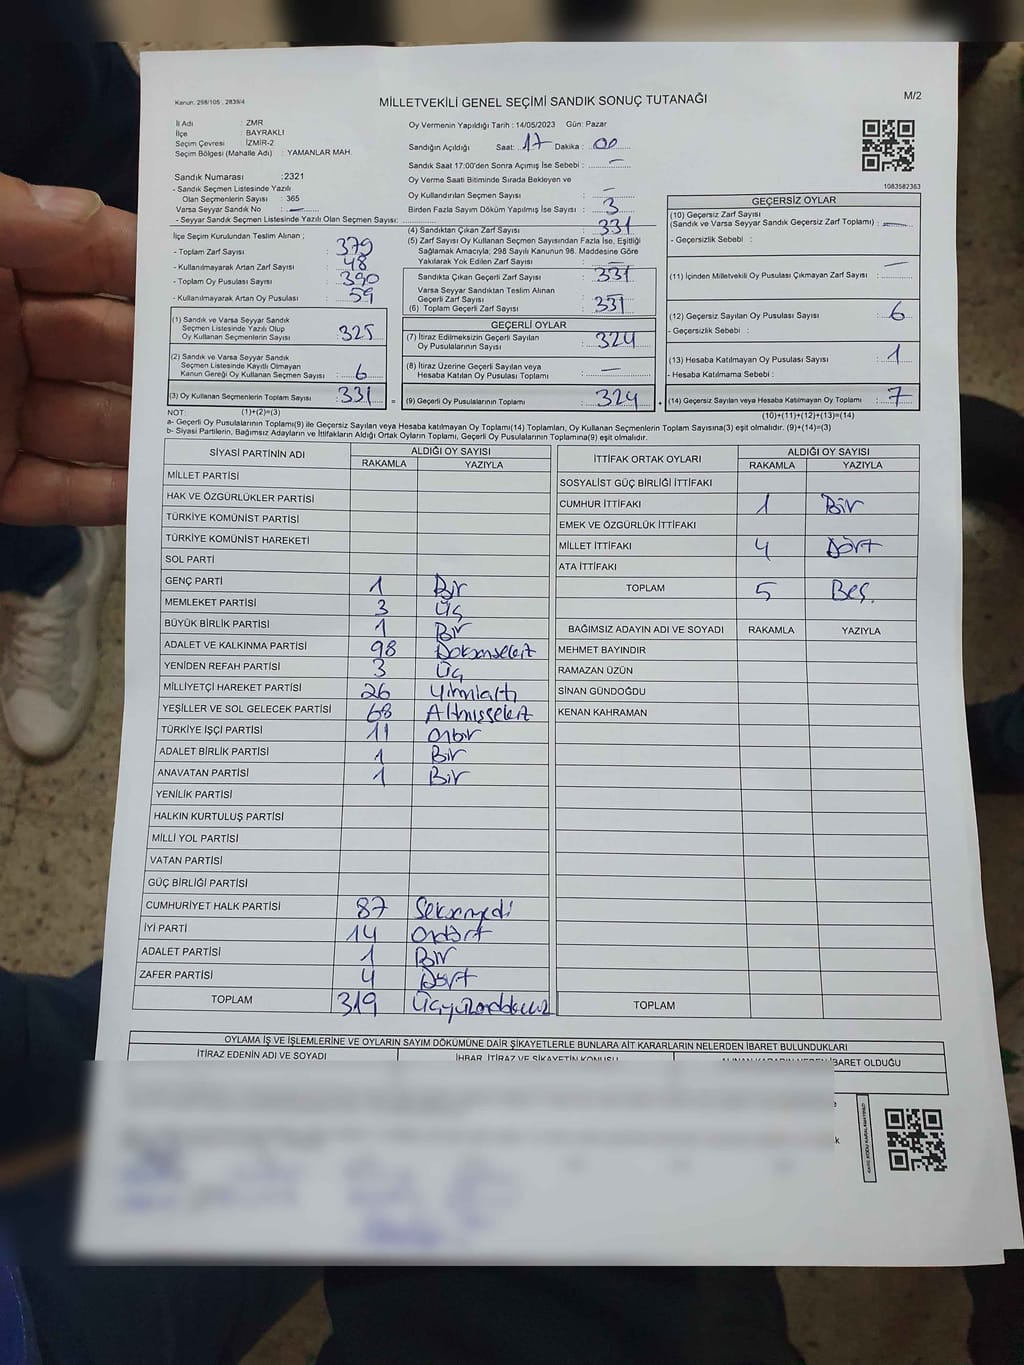 Kanun: 298/105 , 2839/4
MİLLETVEKİLİ GENEL SEÇİMİ SANDIK SONUÇ TUTANAĞI
M/2
İl Adı : ZMR
İlçe : BAYRAKLI
Seçim Çevresi : İZMİR-2
Seçim Bölgesi (Mahalle Adı) : YAMANLAR MAH.
Oy Vermenin Yapıldığı Tarih : 14/05/2023 Gün: Pazar
Sandığın Açıldığı Saat: 17 Dakika : 00
Sandık Saat 17:00'den Sonra Açımış İse Sebebi : –
Oy Verme Saati Bitiminde Sırada Bekleyen ve
Oy Kullandırılan Seçmen Sayısı : –
Birden Fazla Sayım Döküm Yapılmış İse Sayısı : 3
Sandık Numarası :2321
- Sandık Seçmen Listesinde Yazılı
Olan Seçmenlerin Sayısı : 365
Varsa Seyyar Sandık No : –
- Seyyar Sandık Seçmen Listesinde Yazılı Olan Seçmen Sayısı:
1083582363
İlçe Seçim Kurulundan Teslim Alınan ;
- Toplam Zarf Sayısı : 379
- Kullanılmayarak Artan Zarf Sayısı : 48
- Toplam Oy Pusulası Sayısı : 390
- Kullanılmayarak Artan Oy Pusulası : 59
(1) Sandık ve Varsa Seyyar Sandık
Seçmen Listesinde Yazılı Olup
Oy Kullanan Seçmenlerin Sayısı : 325
(2) Sandık ve Varsa Seyyar Sandık
Seçmen Listesinde Kayıtlı Olmayan
Kanun Gereği Oy Kullanan Seçmen Sayısı : 6
(3) Oy Kullanan Seçmenlerin Toplam Sayısı : 331
(4) Sandıktan Çıkan Zarf Sayısı : 331
(5) Zarf Sayısı Oy Kullanan Seçmen Sayısından Fazla İse, Eşitliği
Sağlamak Amacıyla; 298 Sayılı Kanunun 98. Maddesine Göre
Yakılarak Yok Edilen Zarf Sayısı : –
Sandıkta Çıkan Geçerli Zarf Sayısı : 331
Varsa Seyyar Sandıktan Teslim Alınan
Geçerli Zarf Sayısı
(6) Toplam Geçerli Zarf Sayısı : 331
GEÇERLİ OYLAR
(7) İtiraz Edilmeksizin Geçerli Sayılan
Oy Pusulalarının Sayısı : 324
(8) İtiraz Üzerine Geçerli Sayılan veya
Hesaba Katılan Oy Pusulası Toplamı : –
= (9) Geçerli Oy Pusulalarının Toplamı : 324
GEÇERSİZ OYLAR
(10) Geçersiz Zarf Sayısı
(Sandık ve Varsa Seyyar Sandık Geçersiz Zarf Toplamı) : –
- Geçersizlik Sebebi :
(11) İçinden Milletvekili Oy Pusulası Çıkmayan Zarf Sayısı : –
(12) Geçersiz Sayılan Oy Pusulası Sayısı : 6
- Geçersizlik Sebebi :
(13) Hesaba Katılmayan Oy Pusulası Sayısı : 1
- Hesaba Katılmama Sebebi :
+ (14) Geçersiz Sayılan veya Hesaba Katılmayan Oy Toplamı : 7
NOT: (1)+(2)=(3)
(10)+(11)+(12)+(13)=(14)
a- Geçerli Oy Pusulalarının Toplamı(9) ile Geçersiz Sayılan veya Hesaba katılmayan Oy Toplamı(14) Toplamları, Oy Kullanan Seçmenlerin Toplam Sayısına(3) eşit olmalıdır. (9)+(14)=(3)
b- Siyasi Partilerin, Bağımsız Adayların ve İttifakların Aldığı Ortak Oyların Toplamı, Geçerli Oy Pusulalarının Toplamına(9) eşit olmalıdır.
SİYASİ PARTİNİN ADI ALDIĞI OY SAYISI
RAKAMLA YAZIYLA
MİLLET PARTİSİ
HAK VE ÖZGÜRLÜKLER PARTİSİ
TÜRKİYE KOMÜNİST PARTİSİ
TÜRKİYE KOMÜNİST HAREKETİ
SOL PARTİ
GENÇ PARTİ 1 Bir
MEMLEKET PARTİSİ 3 Üç
BÜYÜK BİRLİK PARTİSİ 1 Bir
ADALET VE KALKINMA PARTİSİ 98 Doksansekiz
YENİDEN REFAH PARTİSİ 3 Üç
MİLLİYETÇİ HAREKET PARTİSİ 26 Yirmialtı
YEŞİLLER VE SOL GELECEK PARTİSİ 68 Altmışsekiz
TÜRKİYE İŞÇİ PARTİSİ 11 Onbir
ADALET BİRLİK PARTİSİ 1 Bir
ANAVATAN PARTİSİ 1 Bir
YENİLİK PARTİSİ
HALKIN KURTULUŞ PARTİSİ
MİLLİ YOL PARTİSİ
VATAN PARTİSİ
GÜÇ BİRLİĞİ PARTİSİ
CUMHURİYET HALK PARTİSİ 87 Seksenyedi
İYİ PARTİ 14 Ondört
ADALET PARTİSİ 1 Bir
ZAFER PARTİSİ 4 Dört
TOPLAM 319 Üçyüzondokuz
İTTİFAK ORTAK OYLARI ALDIĞI OY SAYISI
RAKAMLA YAZIYLA
SOSYALİST GÜÇ BİRLİĞİ İTTİFAKI
CUMHUR İTTİFAKI 1 Bir
EMEK VE ÖZGÜRLÜK İTTİFAKI
MİLLET İTTİFAKI 4 Dört
ATA İTTİFAKI
TOPLAM 5 Beş.
BAĞIMSIZ ADAYIN ADI VE SOYADI RAKAMLA YAZIYLA
MEHMET BAYINDIR
RAMAZAN ÜZÜN
SİNAN GÜNDOĞDU
KENAN KAHRAMAN
TOPLAM
OYLAMA İŞ VE İŞLEMLERİNE VE OYLARIN SAYIM DÖKÜMÜNE DAİR ŞİKAYETLERLE BUNLARA AİT KARARLARIN NELERDEN İBARET BULUNDUKLARI
İTİRAZ EDENİN ADI VE SOYADI İHBAR, İTİRAZ VE ŞİKAYETİN KONUSU ALINAN KARARIN NEDEN İBARET OLDUĞU